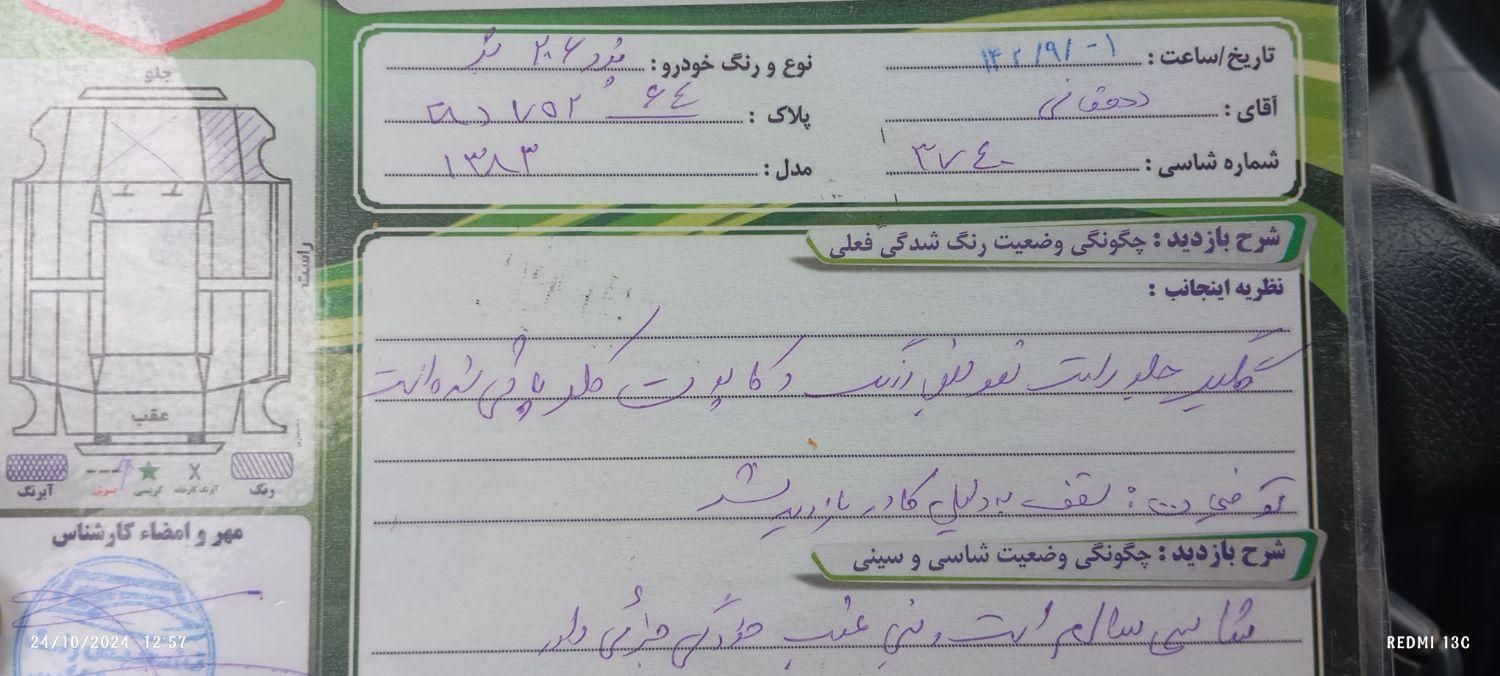 تاریخ/ساعت : ۱۴۰۲/۹/۰۱
نوع و رنگ خودرو : پژو ۲۰۶
آقای : دهقانی
پلاک : ۶۴ ۷۵۲
شماره شاسی : ۳۷۴۰
مدل : ۱۳۸۳
شرح بازدید : چگونگی وضعیت رنگ شدگی فعلی
نظریه اینجانب :
گلگیر جلو راست تعویض و کاپوت جلو شده است
توضیحات : سقف به دلیل کادر بازدید نشد
شرح بازدید : چگونگی وضعیت شاسی و سینی
شاسی سالم است سینی عقب خوردگی جزئی دارد
جلو
راست
عقب
رنگ
آبرنگ کارخانه
گریسی
آبرنگ
مهر و امضاء کارشناس
24/10/2024 12:57
REDMI 13C